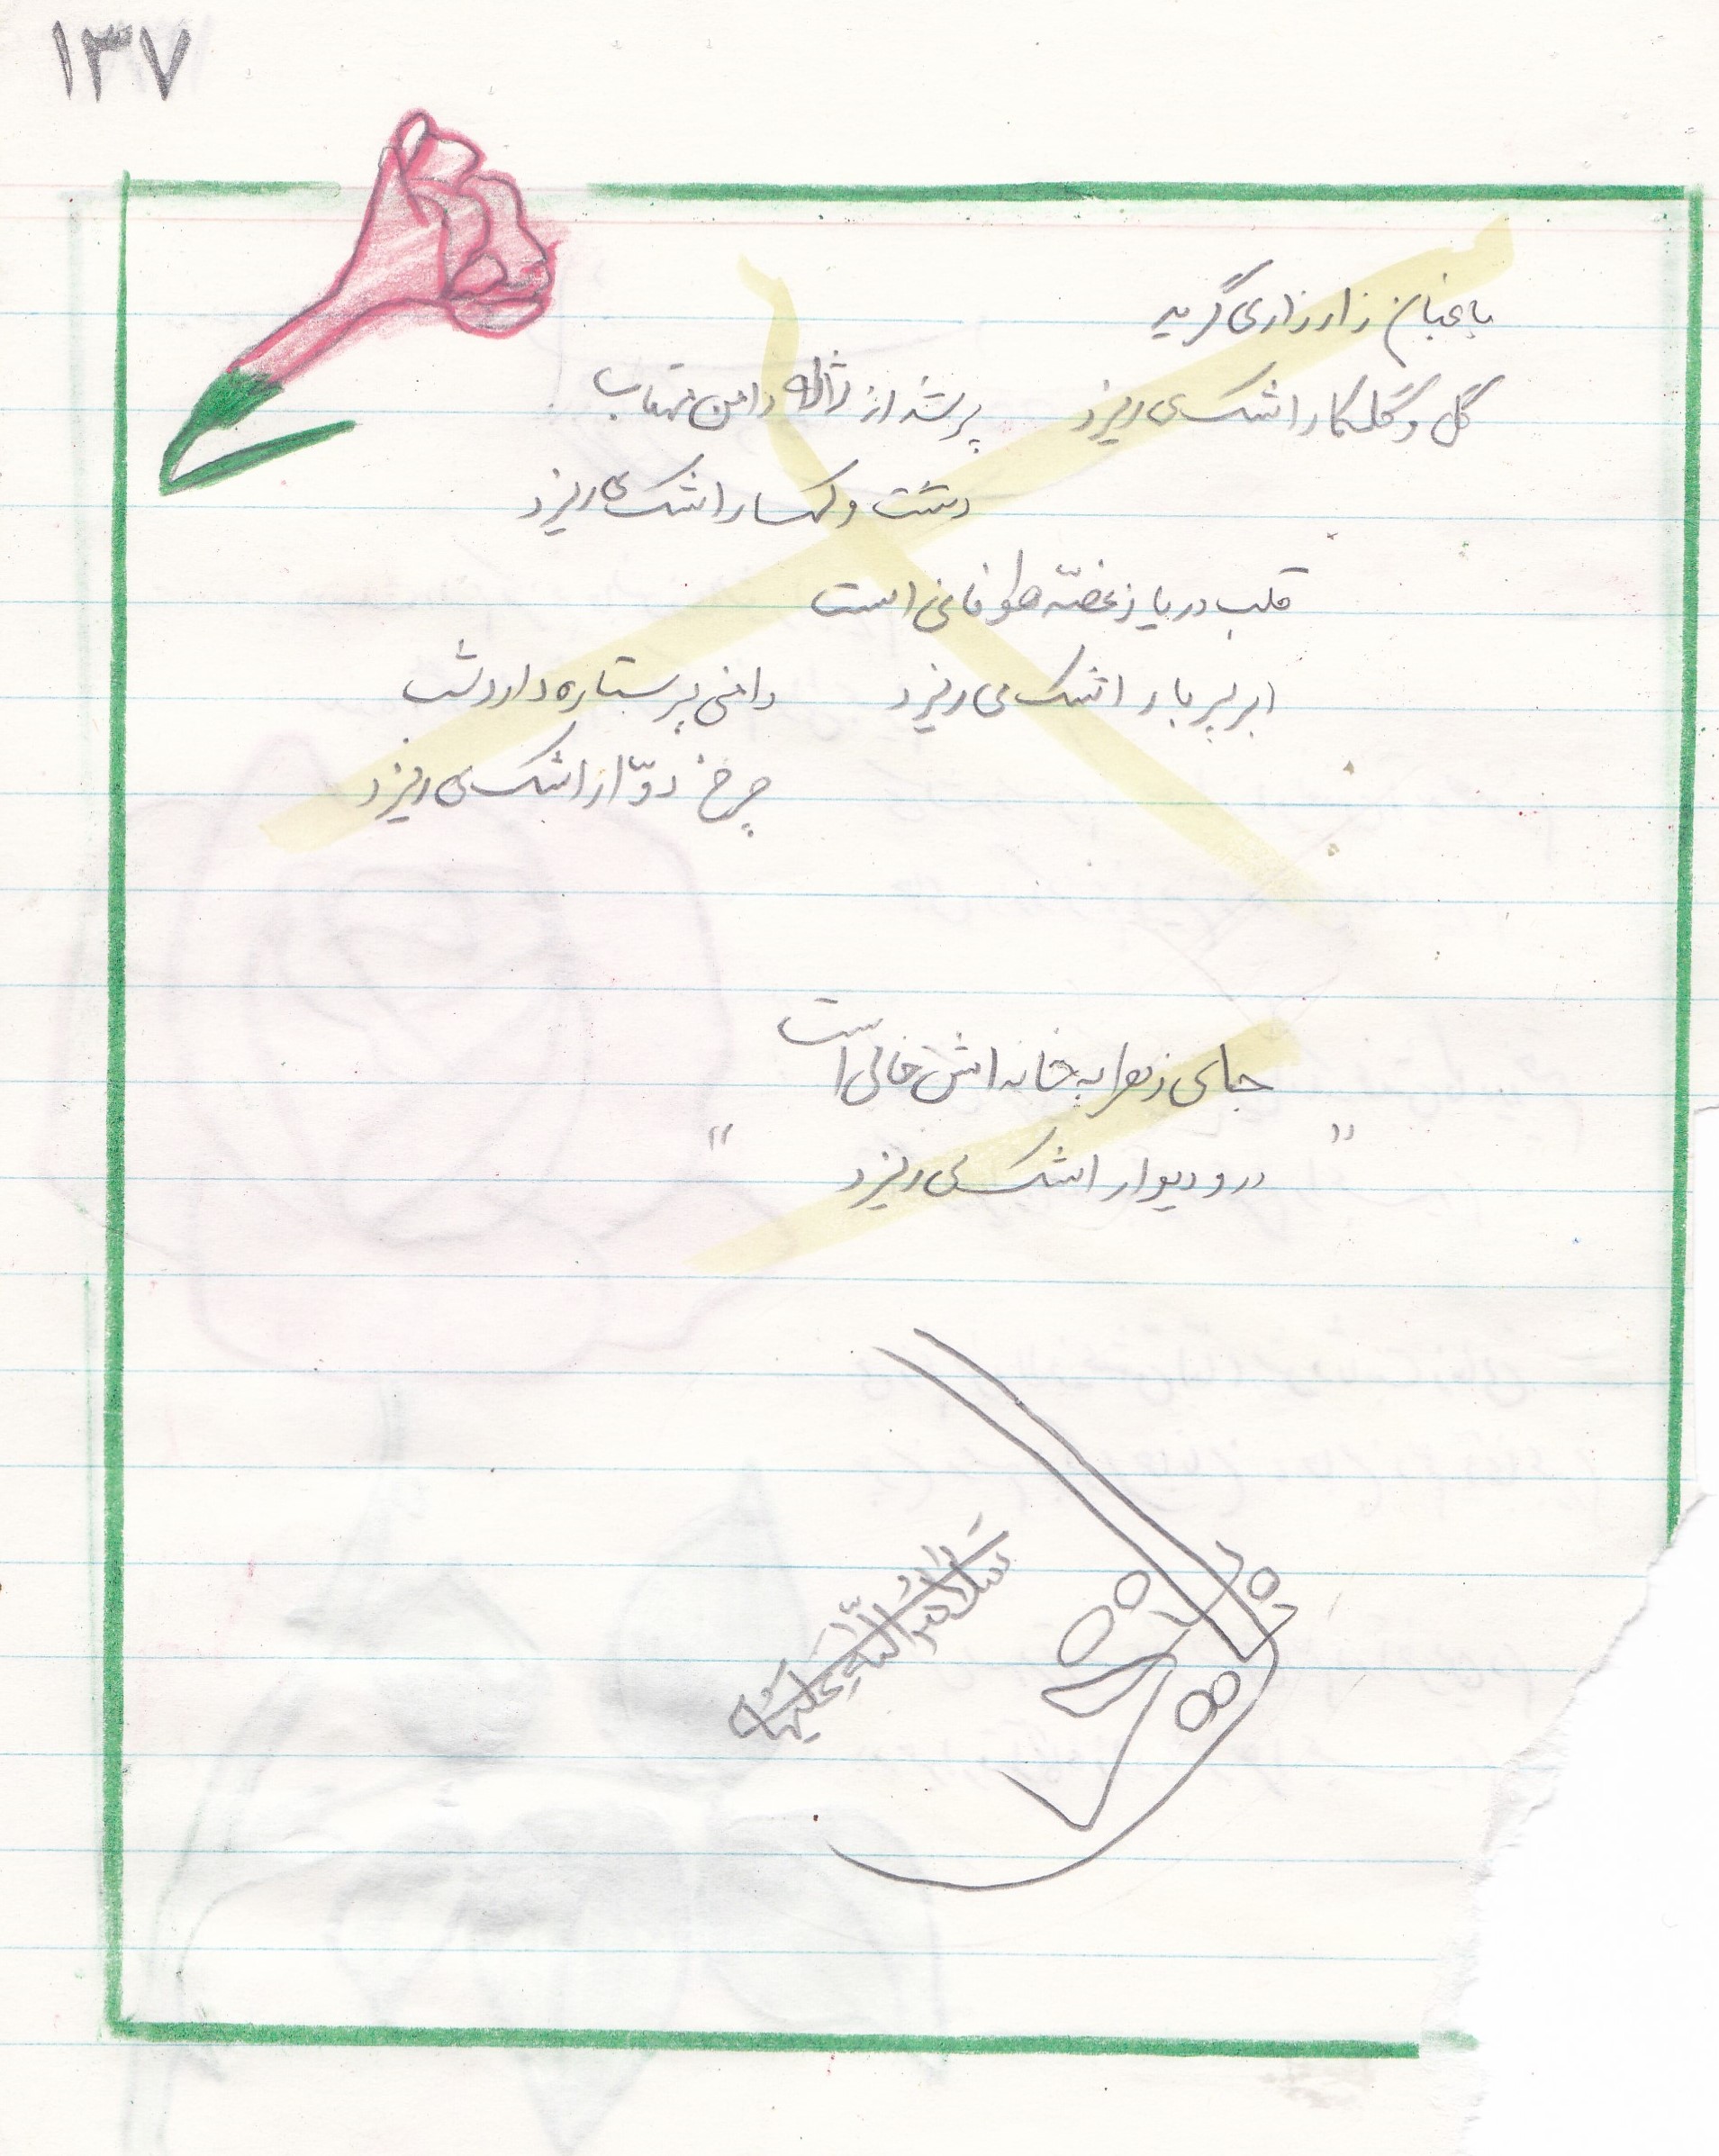 ۱۳۷
باغبان زار زار می گرید
گل و گلکار اشک می ریزد پر شد از ژاله دامن مهتاب
دشت و کهسار اشک می ریزد
قلب دریا ز غصّه طوفانی است
ابر پر بار اشک می ریزد دامنی پر ستاره دارد شب
چرخ دوّار اشک می ریزد
جای زهرا به خانه اش خالی است
" در و دیوار اشک می ریزد "
سلام اللّه علیها